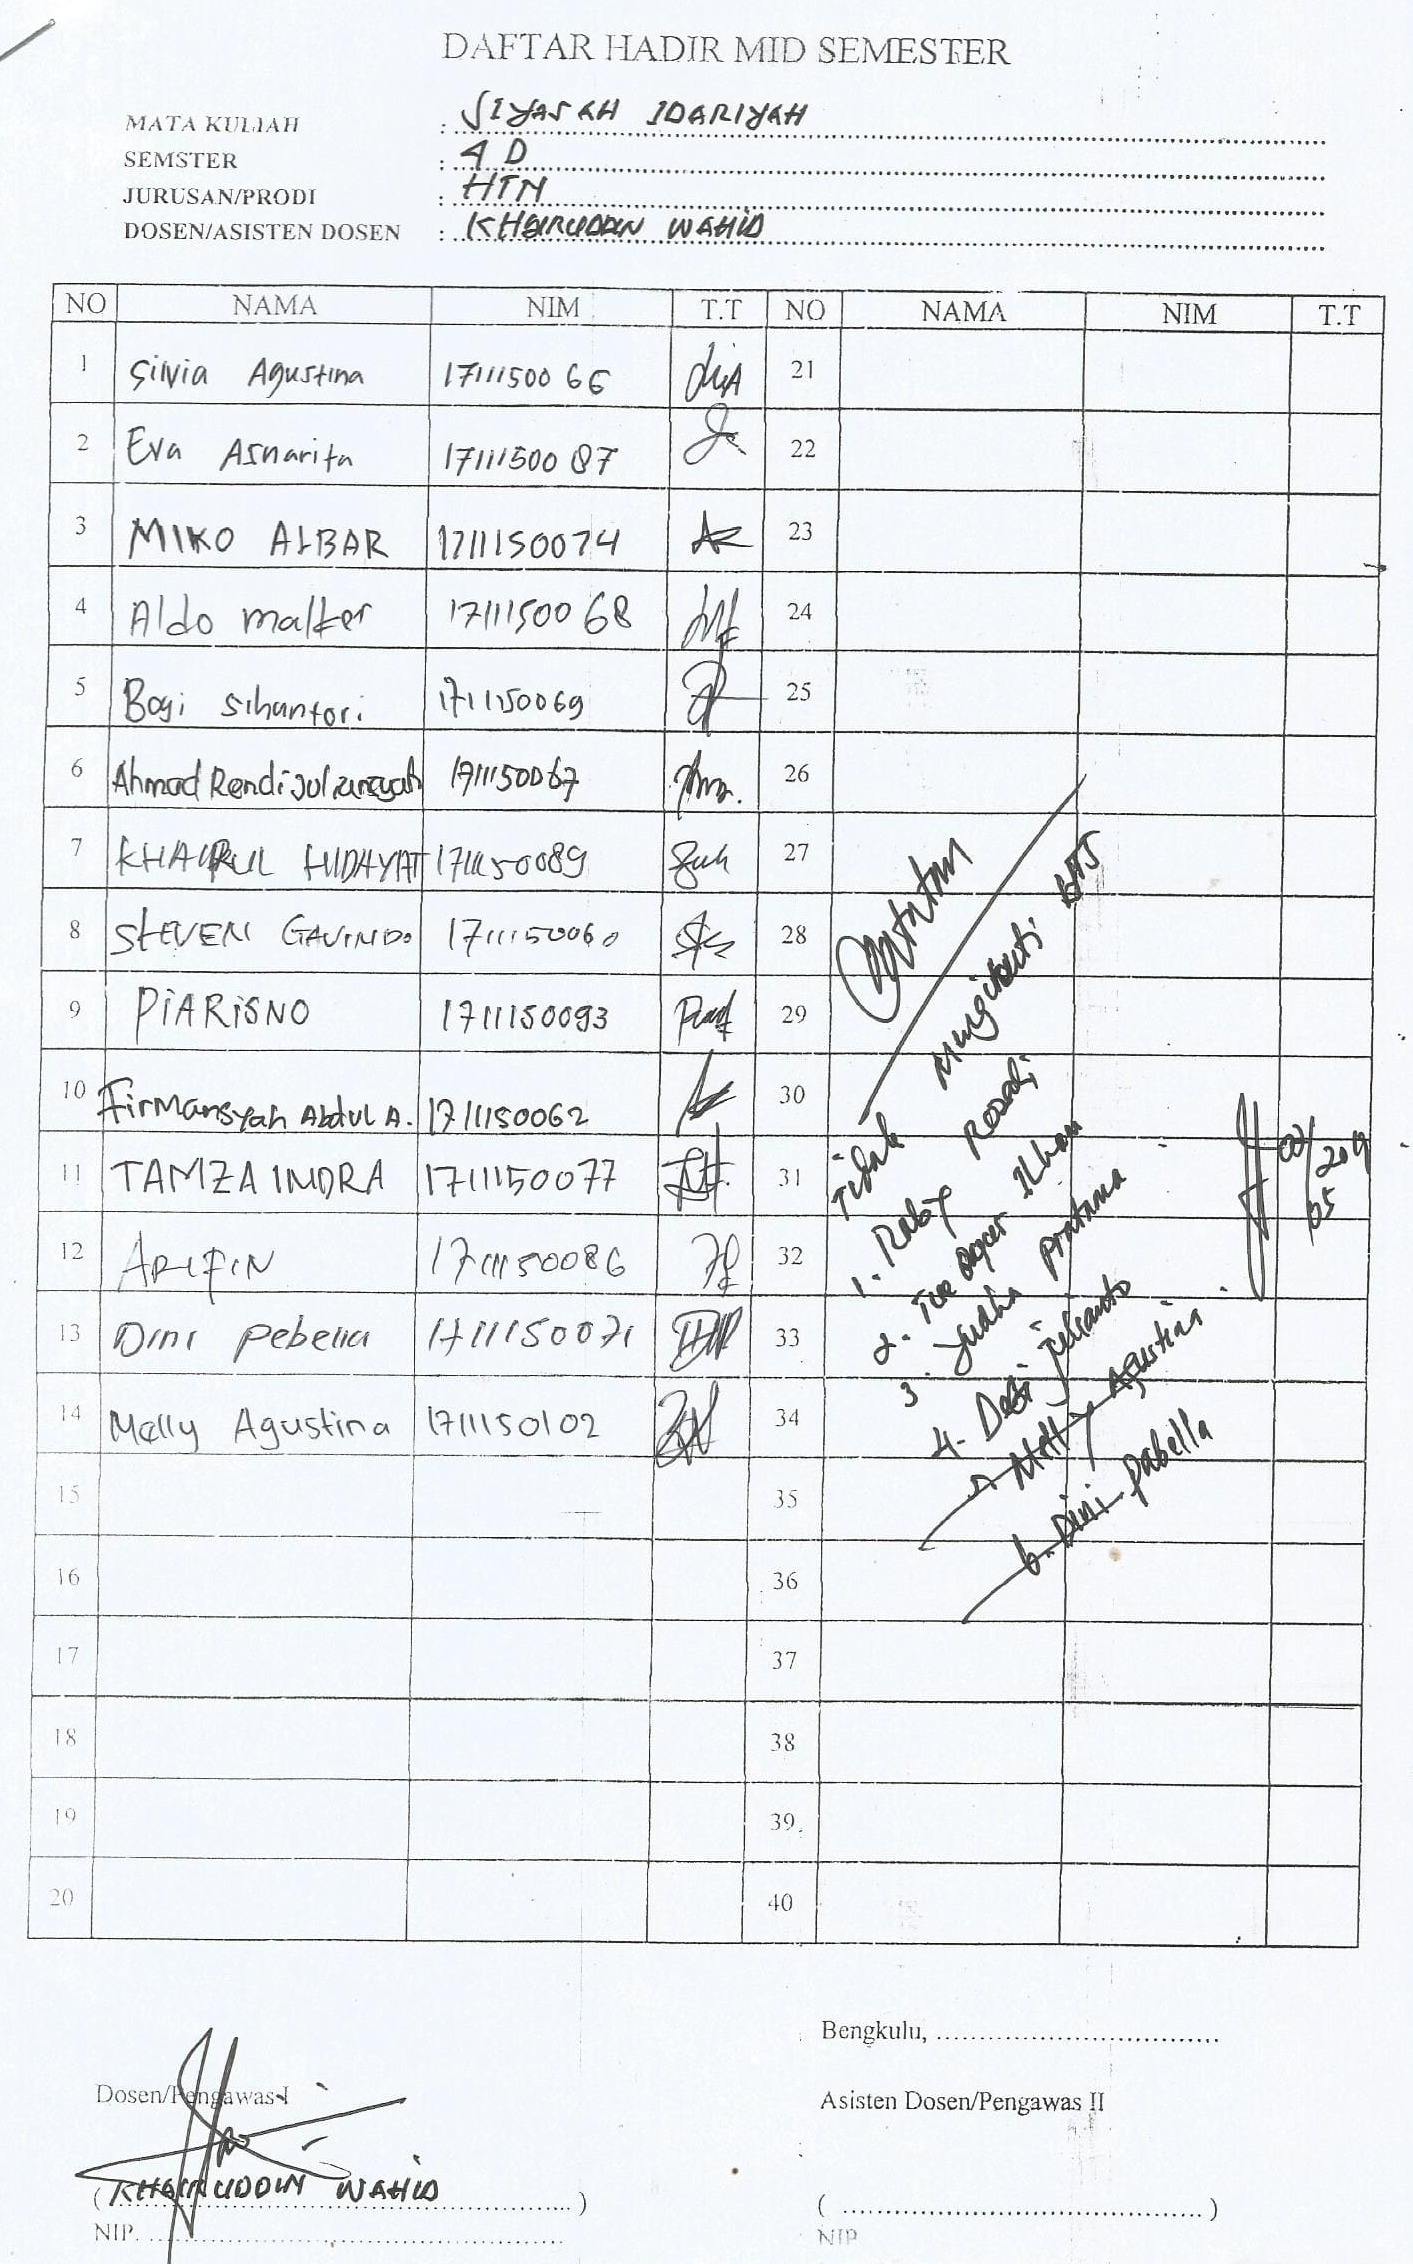 DAFTAR HADIR MID SEMESTER
MATA KULIAH : SIYASAH IDARIYAH
SEMSTER : 4 D
JURUSAN/PRODI : HTN
DOSEN/ASISTEN DOSEN : KHAIRUDDIN WAHID
NO NAMA NIM T.T NO NAMA NIM T.T
1 Silvia Agustina 1711150066 21
2 Eva Asnarita 1711150087 22
3 MIKO ALBAR 1711150074 23
4 Aldo malter 1711150068 24
5 Bogi Sihantori 1711150069 25
6 Ahmad Rendi 1711150067 26
7 KHAIRUL HIDAYAT 1711150089 27
8 STEVEN GAVINDO 1711150060 28
9 PIARISNO 1711150093 29
10 Firmansyah Abdul A. 1711150062 30
11 TAMZA INDRA 1711150077 31
12 ARIFIN 1711150086 32
13 Dini Pebella 1711150071 33
14 Melly Agustina 1711150102 34
15 35
16 36
17 37
18 38
19 39
20 40
Catatan
Tidak mengikuti UTS
1. Roby Rosadi
2. Ilham
3. Yudha pratama
4. Dedi julianto
5. Melly Agustina
6. Dini Pabella
02/05 2019
Bengkulu, ................................
Dosen/Pengawas I Asisten Dosen/Pengawas II
( KHAIRUDDIN WAHID ) ( ................................ )
NIP. NIP